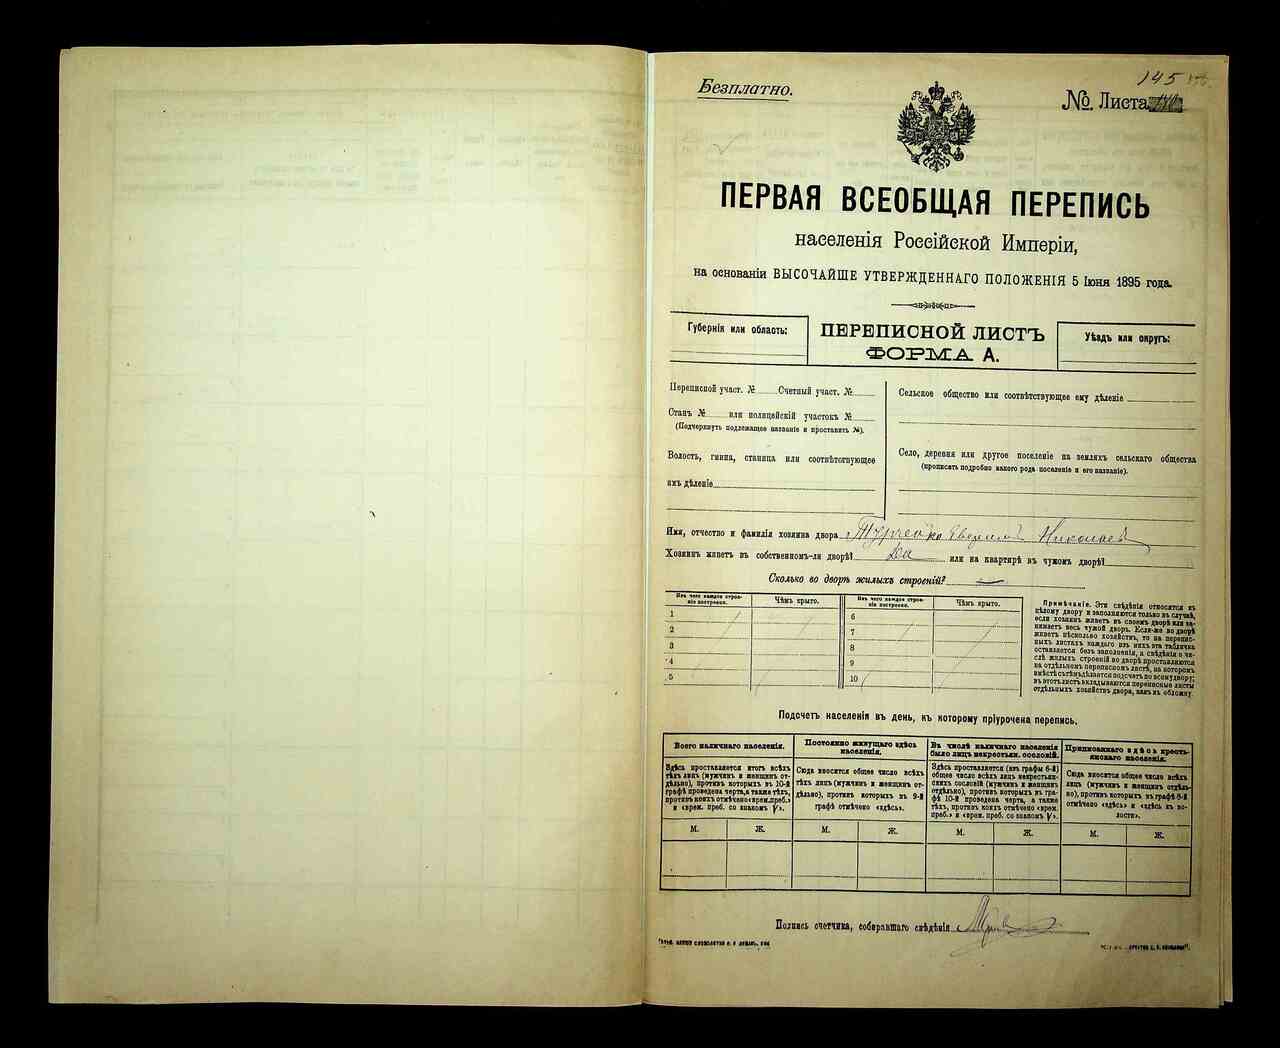 145
Безплатно.
№ Листа
ПЕРВАЯ ВСЕОБЩАЯ ПЕРЕПИСЬ
населенія Россійской Имперіи,
на основаніи ВЫСОЧАЙШЕ УТВЕРЖДЕННАГО ПОЛОЖЕНІЯ 5 Іюня 1895 года.
Губернія или область:
ПЕРЕПИСНОЙ ЛИСТЪ
ФОРМА А.
Уѣздъ или округъ:
Переписной участ. № Счетный участ. №
Станъ № или полицейскій участокъ №
(Подчеркнуть подлежащее названіе и проставить №).
Волость, гмина, станица или соотвѣтствующее
имъ дѣленіе
Сельское общество или соотвѣтствующее ему дѣленіе
Село, деревня или другое поселеніе на земляхъ сельскаго общества
(прописать подробно какого рода поселеніе и его названіе).
Имя, отчество и фамилія хозяина двора Турченко Николаев
Хозяинъ живетъ въ собственномъ-ли дворѣ? Да или на квартирѣ въ чужомъ дворѣ?
Сколько во дворѣ жилыхъ строеній? —
Изъ чего каждое строе-
ніе построено.
Чѣмъ крыто.
Изъ чего каждое строе-
ніе построено.
Чѣмъ крыто.
1
2
3
4
5
6
7
8
9
10
Примѣчаніе. Эти свѣдѣнія относятся къ
цѣлому двору и заполняются только въ случаѣ,
если хозяинъ живетъ въ своемъ дворѣ или за-
нимаетъ весь чужой дворъ. Если-же во дворѣ
живетъ нѣсколько хозяйствъ, то на перепис-
ныхъ листахъ каждаго изъ нихъ эта табличка
оставляется безъ заполненія, а свѣдѣнія о чи-
слѣ жилыхъ строеній во дворѣ проставляются
на отдѣльномъ переписномъ листѣ, на которомъ
вмѣстѣ съ тѣмъ дѣлается подсчетъ по всему двору;
въ этотъ листъ вкладываются переписные листы
отдѣльныхъ хозяйствъ двора, какъ въ обложку.
Подсчетъ населенія въ день, къ которому пріурочена перепись.
Всего наличнаго населенія.
Здѣсь проставляется итогъ всѣхъ
тѣхъ лицъ (мужчинъ и женщинъ от-
дѣльно), противъ которыхъ въ 10-й
графѣ проведена черта, а также тѣхъ,
противъ коихъ отмѣчено «врем. преб.»
и «врем. преб. со знакомъ V».
Постоянно живущаго здѣсь
населенія.
Сюда вносится общее число всѣхъ
тѣхъ лицъ (мужчинъ и женщинъ от-
дѣльно), противъ которыхъ въ 9-й
графѣ отмѣчено «здѣсь».
Въ числѣ наличнаго населенія
было лицъ некрестьян. сословій.
Здѣсь проставляется (изъ графы 6-й)
общее число всѣхъ лицъ некрестьян-
скихъ сословій (мужчинъ и женщинъ
отдѣльно), противъ которыхъ въ гра-
фѣ 10-й проведена черта, а также
тѣхъ, противъ коихъ отмѣчено «врем.
преб.» и «врем. преб. со знакомъ V».
Приписаннаго здѣсь кресть-
янскаго населенія.
Сюда вносится общее число всѣхъ
лицъ (мужчинъ и женщинъ отдѣль-
но), противъ которыхъ въ графѣ 8-й
отмѣчено «здѣсь» и «здѣсь въ во-
лости».
М. Ж. М. Ж. М. Ж. М. Ж.
Подпись счетчика, собиравшаго свѣдѣнія